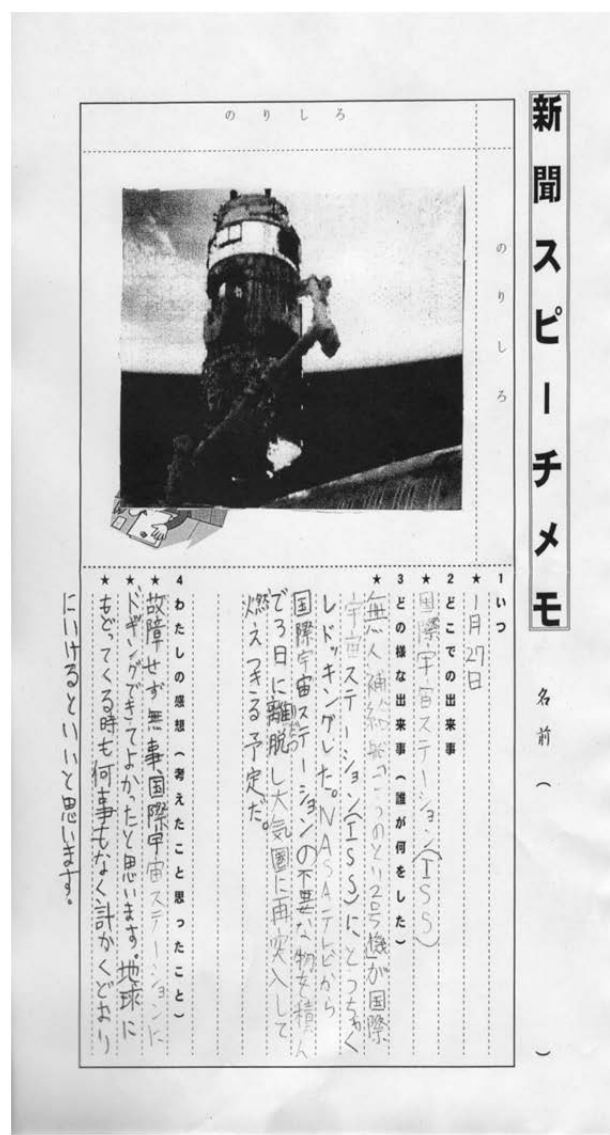 新聞スピーチメモ
名前（　　　）
のりしろ
のりしろ
1 いつ
★1月27日
2 どこでの出来事
★国際宇宙ステーション(ISS)
3 どの様な出来事（誰が何をした）
★無人補給船「こうのとり2号機」が国際
宇宙ステーション(ISS)に、とうちゃく
しドッキングした。NASAテレビから
国際宇宙ステーションの不要な物を積ん
で3日に離脱し大気圏に再突入して
燃えつきる予定だ。
4 わたしの感想（考えたこと思ったこと）
★故障せず無事、国際宇宙ステーションに
★ドッキングできてよかったと思います。地球に
★もどってくる時も何事もなく計かくどおり
にいけるといいと思います。